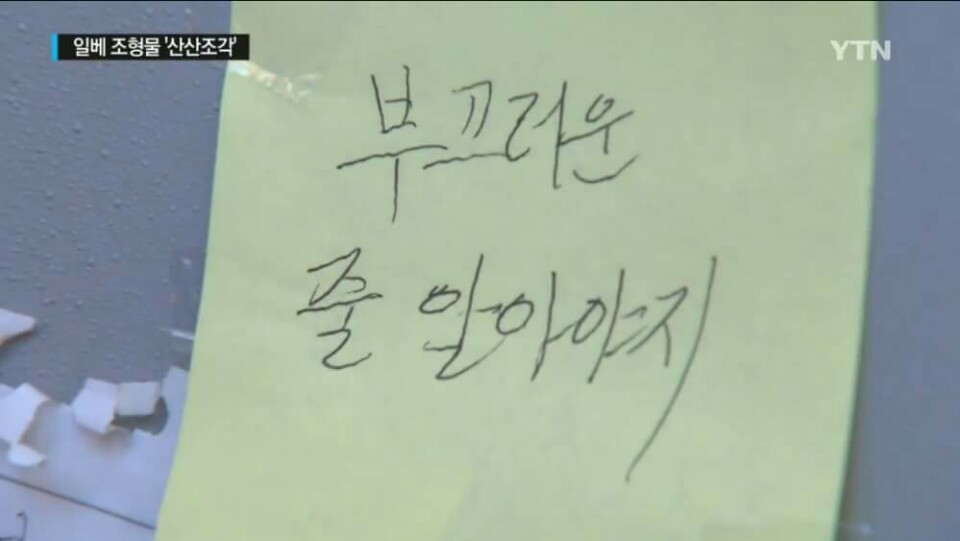 일베 조형물 '산산조각'
YTN
부끄러운
줄 알아야지